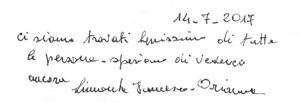 14-7-2017
ci siamo trovati benissimo di tutte
le persone - speriamo di vederci
ancora
Simonetta Francesco - Orianna